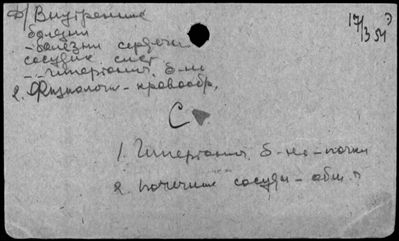 Ф/ Внутренние
болезни
- болезни сердечн.
сосудист. сист
-- гипертонич. б-нь
2. Физиология - кровообр.
17/3 51
С
1. Гипертонич. б-нь - почки
2. почечные сосуды - общ.